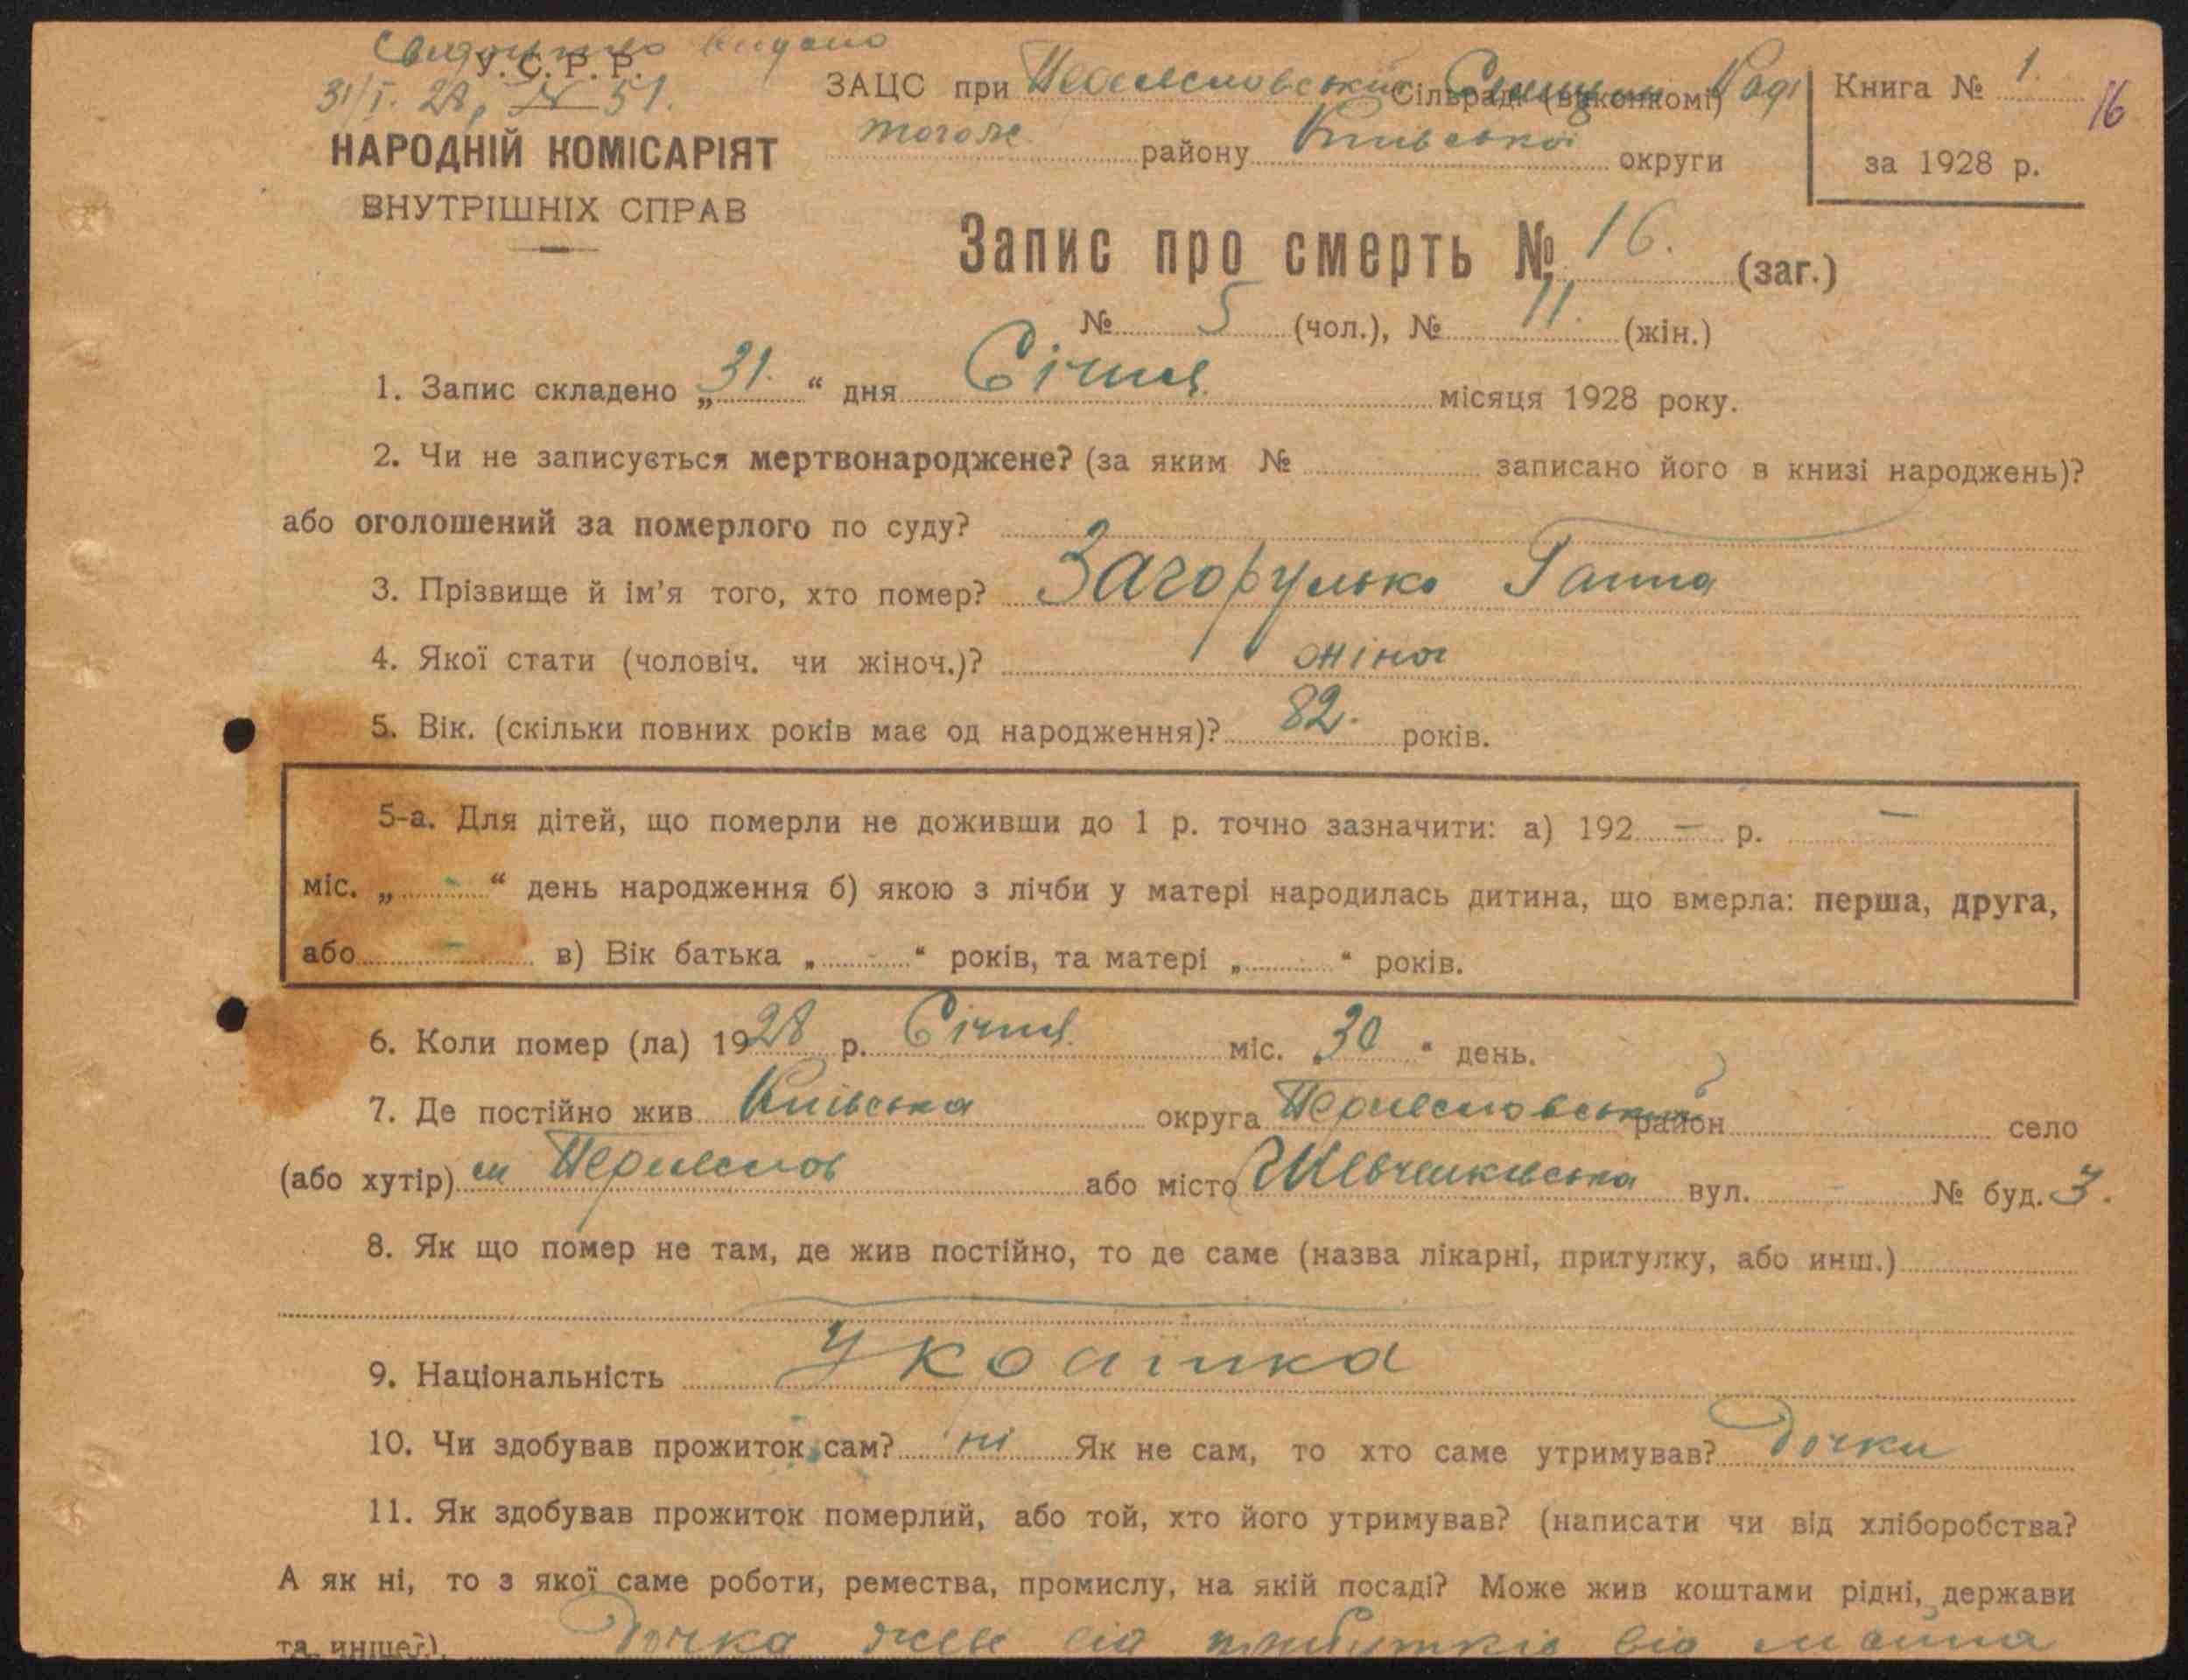 Свидоцтво видано
У. С. Р. Р.
31/I. 28, N 51.
НАРОДНІЙ КОМІСАРІЯТ
ВНУТРІШНІХ СПРАВ
ЗАЦС при Сільраді (виконкомі) Раді
тогож району Київської округи
Книга № 1.
16
за 1928 р.
Запис про смерть № 16. (заг.)
№ 5 (чол.), № 11. (жін.)
1. Запис складено „31." дня Січня місяця 1928 року.
2. Чи не записується мертвонароджене? (за яким № записано його в книзі народжень)?
або оголошений за померлого по суду?
3. Прізвище й ім'я того, хто помер? Загорулько Ганна
4. Якої стати (чоловіч. чи жіноч.)? жіноч
5. Вік. (скільки повних років має од народження)? 82. років.
5-а. Для дітей, що померли не доживши до 1 р. точно зазначити: а) 192 — р. —
міс. „ - " день народження б) якою з лічби у матері народилась дитина, що вмерла: перша, друга,
або - в) Вік батька „ - " років, та матері „ " років.
6. Коли помер (ла) 1928 р. Січня міс. „30" день.
7. Де постійно жив Київська округа район село
(або хутір) м або місто Шевченківська вул. - № буд. 3.
8. Як що помер не там, де жив постійно, то де саме (назва лікарні, притулку, або инш.)
9. Національність Українка
10. Чи здобував прожиток сам? ні Як не сам, то хто саме утримував? Дочки
11. Як здобував прожиток померлий, або той, хто його утримував? (написати чи від хліборобства?
А як ні, то з якої саме роботи, ремества, промислу, на якій посаді? Може жив коштами рідні, держави
та инше?). Дочка живе від прибутків від майна